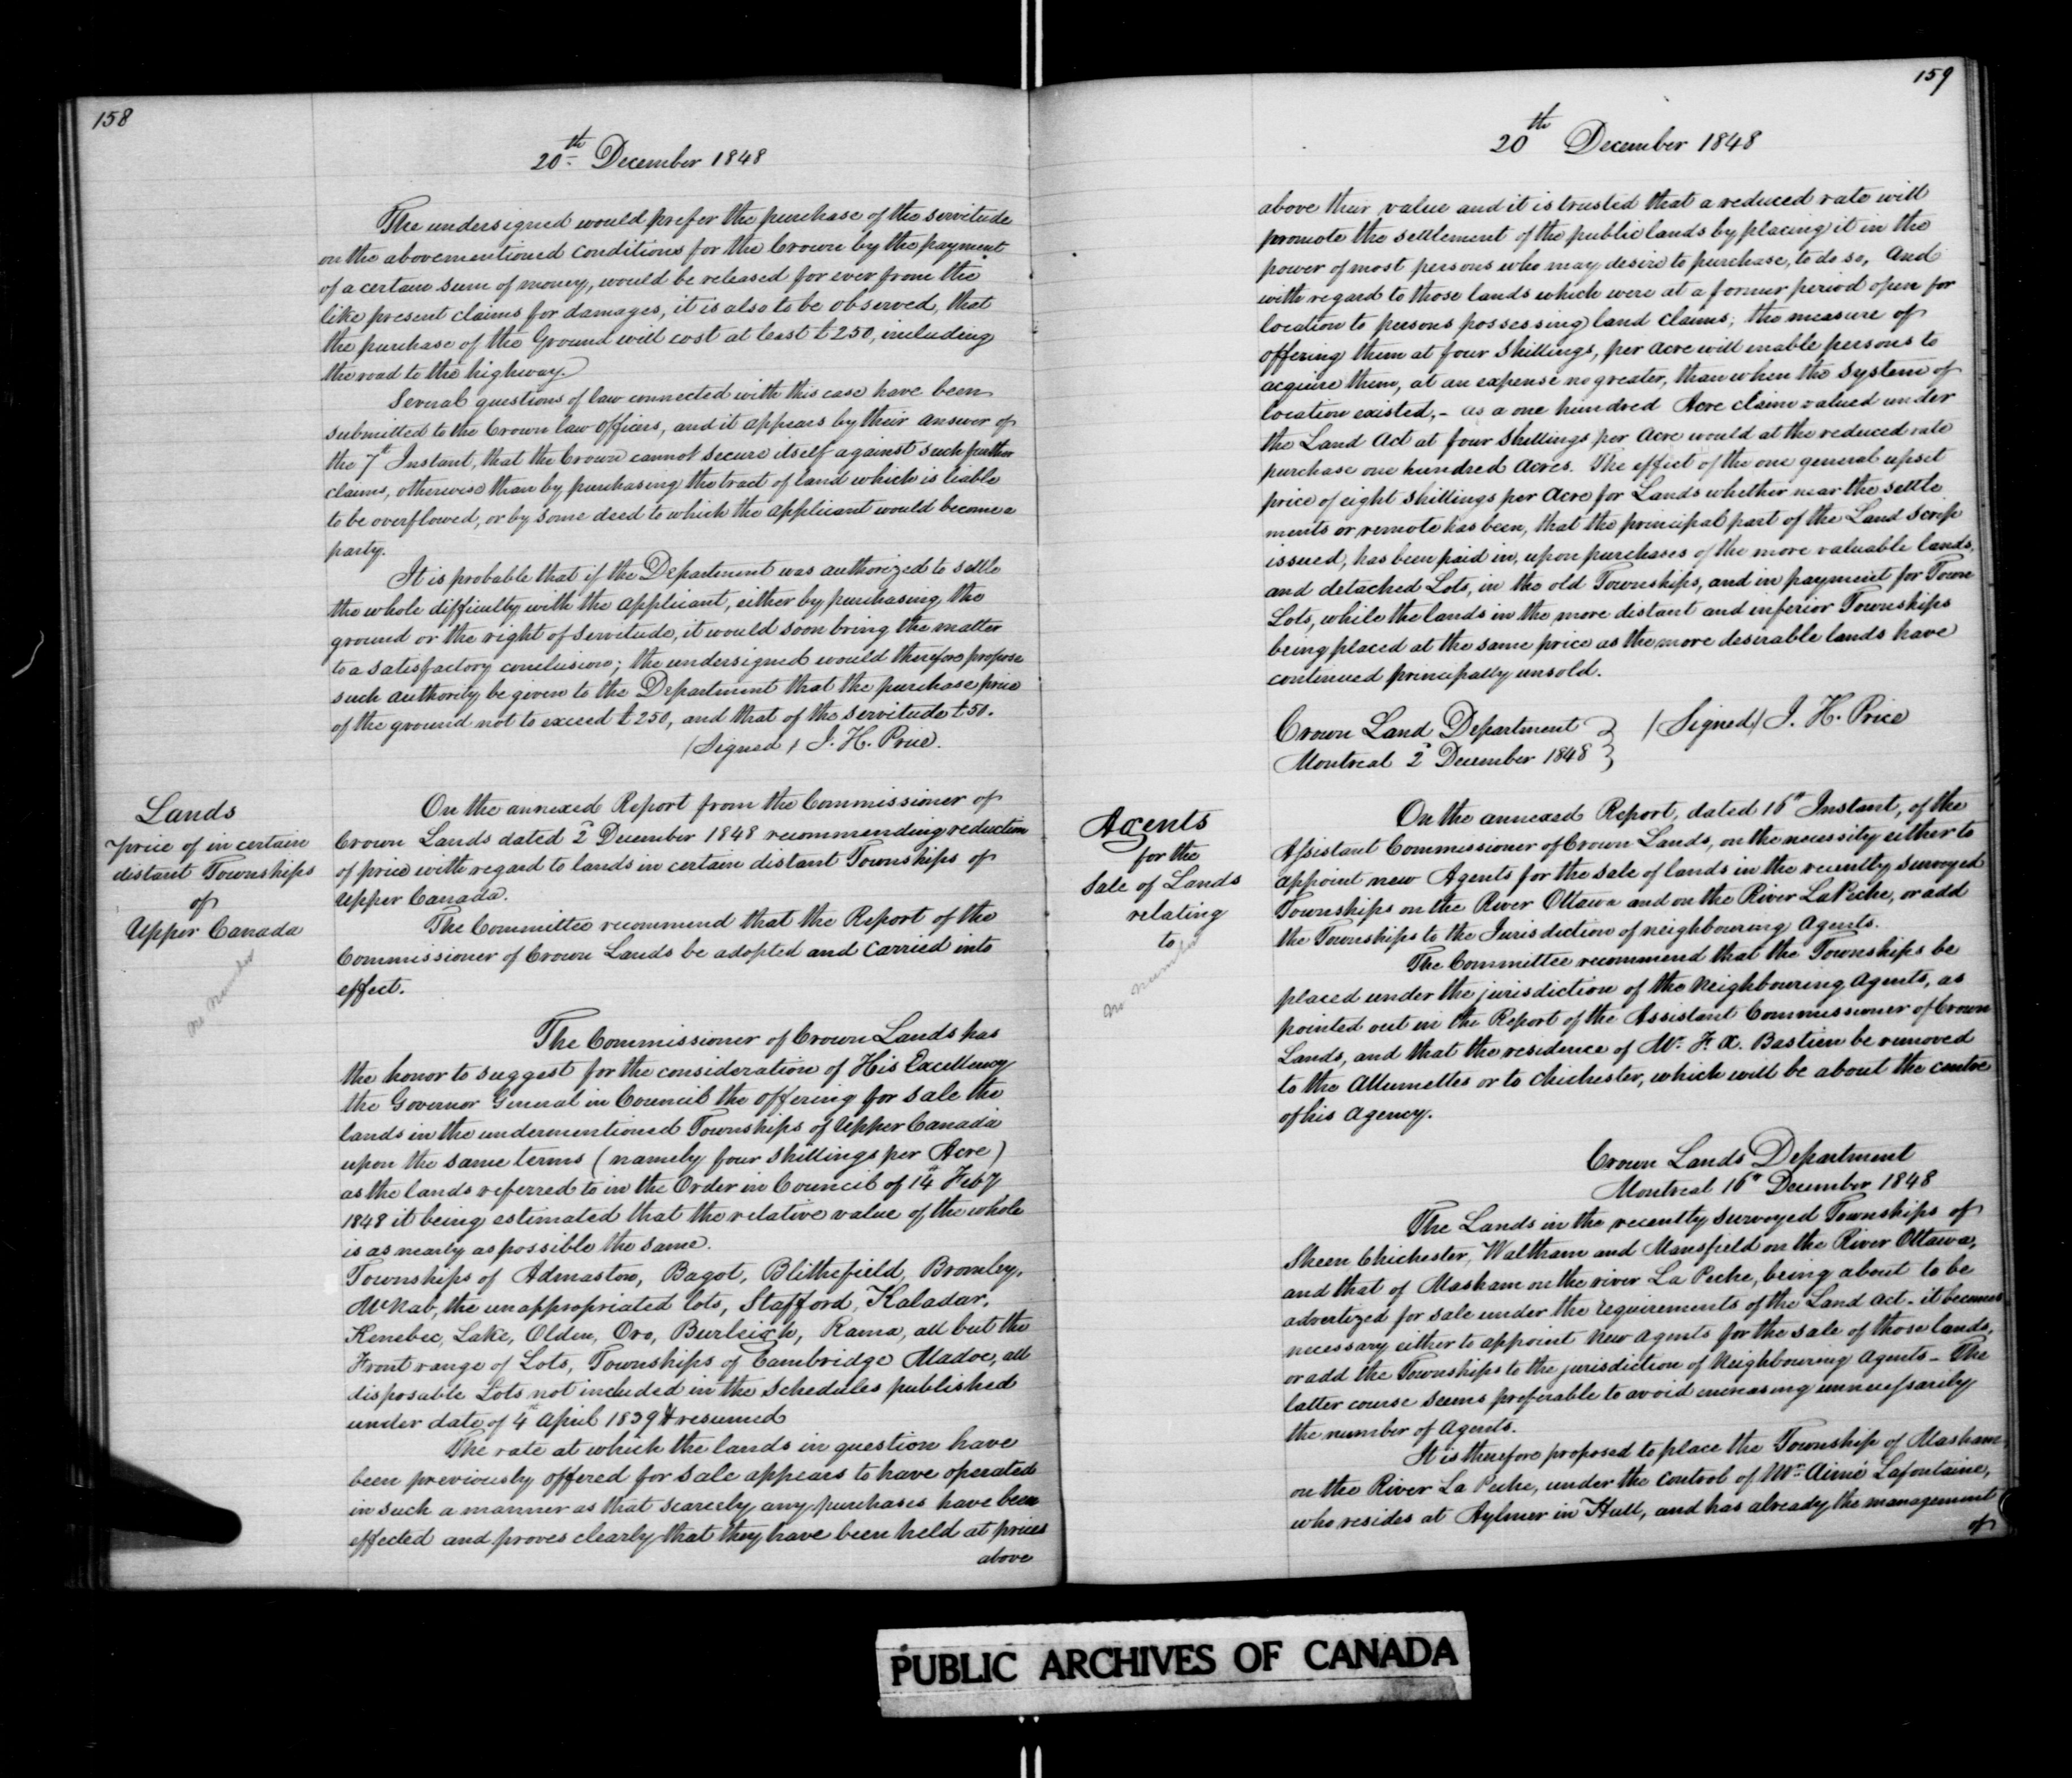 158
20th December 1848
The undersigned would prefer the purchase of the servitude
on the abovementioned conditions for the Crown by the payment
of a certain sum of money, would be released for ever from the
like present claims for damages, it is also to be observed, that
the purchase of the Ground will cost at least £250, including
the road to the highway.
Several questions of law connected with this case have been
submitted to the Crown law Officers, and it appears by their answer of
the 7th Instant, that the Crown cannot secure itself against such further
claims, otherwise than by purchasing the tract of land which is liable
to be overflowed, or by some deed to which the applicant would become a
party.
It is probable that if the Department was authorized to settle
the whole difficulty with the applicant, either by purchasing the
ground or the right of servitude, it would soon bring the matter
to a satisfactory conclusion; the undersigned would therefore propose
such authority be given to the Department that the purchase price
of the ground not to exceed £250, and that of the servitude £50.
(Signed) J. H. Price.
Lands
price of in certain
distant Townships
of
Upper Canada
no number
On the annexed Report from the Commissioner of
Crown Lands dated 2d December 1848 recommending reduction
of price with regard to lands in certain distant Townships of
Upper Canada.
The Committee recommend that the Report of the
Commissioner of Crown Lands be adopted and carried into
effect.
The Commissioner of Crown Lands has
the honor to suggest for the consideration of His Excellency
the Governor General in Council the offering for sale the
lands in the undermentioned Townships of Upper Canada
upon the same terms (namely four shillings per Acre)
as the lands referred to in the Order in Council of 14th Feby
1848 it being estimated that the relative value of the whole
is as nearly as possible the same.
Townships of Admaston, Bagot, Blithefield, Bromley,
McNab, the unappropriated lots, Stafford, Kaladar,
Kenebec, Lake, Olden, Oro, Burleigh, Rama, all but the
Front range of Lots, Townships of Cambridge Madoc, all
disposable Lots not included in the schedules published
under date of 4th April 1839 & resumed
The rate at which the lands in question have
been previously offered for sale appears to have operated
in such a manner as that scarcely any purchases have been
effected and proves clearly that they have been held at prices
above
159
20th December 1848
above their value and it is trusted that a reduced rate will
promote the settlement of the public lands by placing it in the
power of most persons who may desire to purchase, to do so, And
with regard to those lands which were at a former period open for
location to persons possessing land claims; the measure of
offering them at four shillings, per acre will enable persons to
acquire them, at an expense no greater, than when the system of
location existed,- as a one hundred Acre claim valued under
the Land Act at four shillings per Acre would at the reduced rate
purchase one hundred Acres. The effect of the one general upset
price of eight shillings per Acre for Lands whether near the settle
ments or remote has been, that the principal part of the Land Scrip
issued, has been paid in, upon purchases of the more valuable lands,
and detached Lots, in the old Townships, and in payment for Town
Lots, while the lands in the more distant and inferior Townships
being placed at the same price as the more desirable lands have
continued principally unsold.
Crown Land Department } (Signed) J. H. Price
Montreal 2d December 1848
Agents
for the
Sale of Lands
relating
to
no number
On the annexed Report, dated 16th Instant, of the
Assistant Commissioner of Crown Lands, on the necessity either to
appoint new Agents for the sale of lands in the recently surveyed
Townships on the River Ottawa and on the River La Peche, or add
the Townships to the Jurisdiction of neighbouring Agents.
The Committee recommend that the Townships be
placed under the jurisdiction of the Neighbouring Agents, as
pointed out in the Report of the Assistant Commissioner of Crown
Lands, and that the residence of Mr. F. X. Bastien be removed
to the Allumettes or to Chichester, which will be about the centre
of his Agency.
Crown Lands Department
Montreal 16th December 1848
The Lands in the recently surveyed Townships of
Sheen, Chichester, Waltham and Mansfield on the River Ottawa,
and that of Masham on the river La Peche, being about to be
advertized for sale under the requirements of the Land Act - it becomes
necessary either to appoint New Agents for the sale of those lands,
or add the Townships to the jurisdiction of Neighbouring Agents - The
latter course seems preferable to avoid increasing unnecessarily
the number of Agents.
It is therefore proposed to place the Township of Masham
on the River La Peche, under the control of Mr. Aimé Lafontaine,
who resides at Aylmer in Hull, and has already the management
of
PUBLIC ARCHIVES OF CANADA